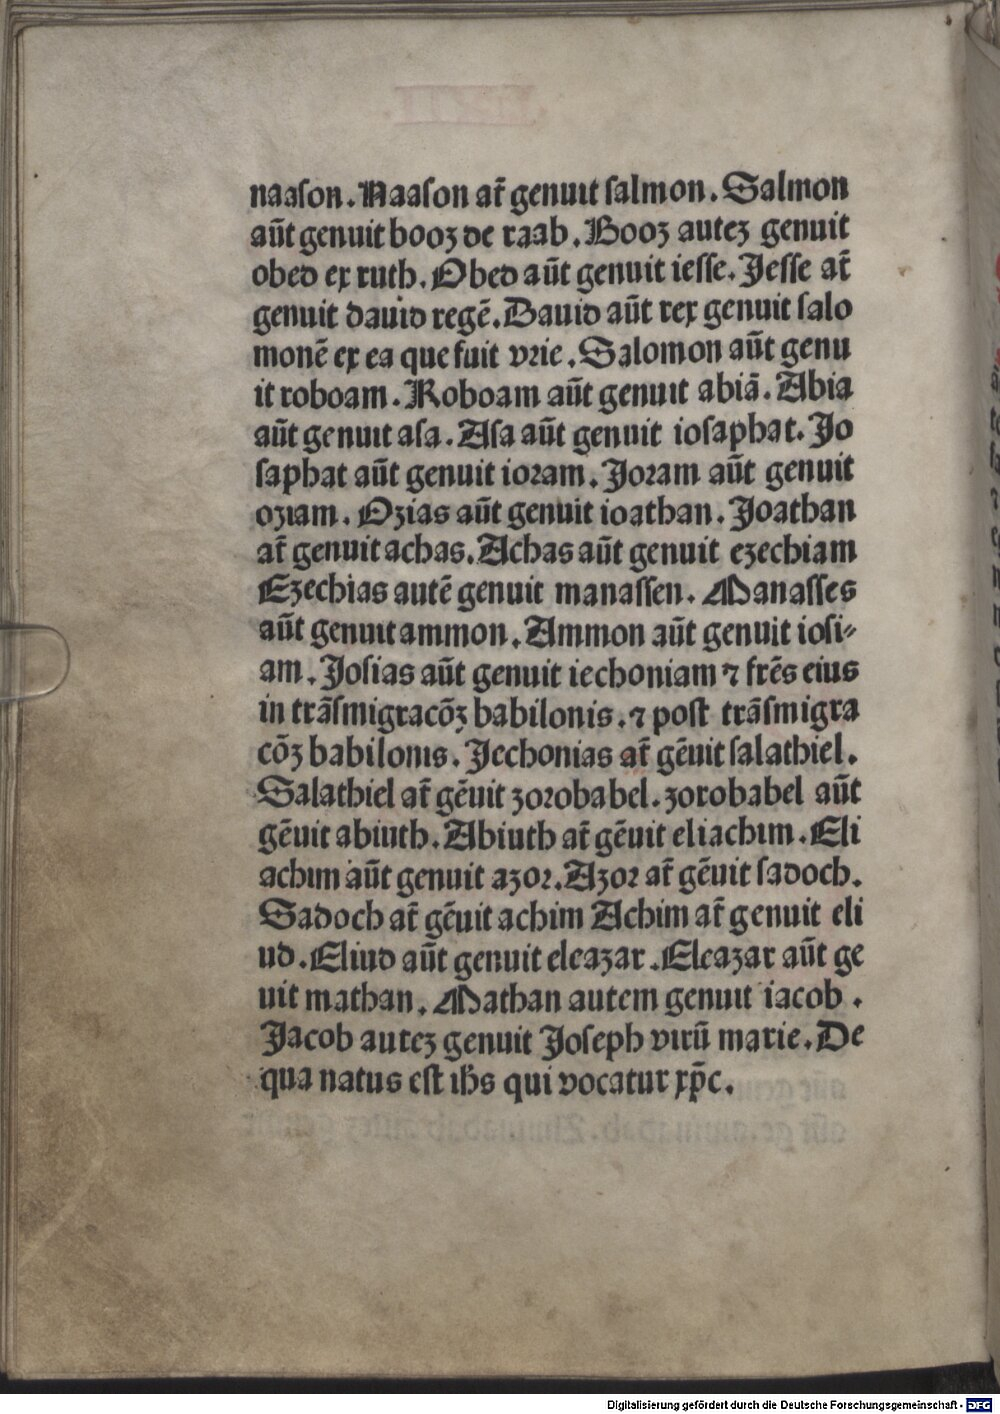 naaſon. Naaſon at̄ genuit ſalmon. Salmon
aūt genuit booꝫ de raab. Booꝫ auteꝫ genuit
obed ex ruth. Obed aūt genuit ieſſe. Jeſſe at̄
genuit dauid regē. Dauid aūt rex genuit ſalo
monē ex ea que fuit vrie. Salomon aūt genu
it roboam. Roboam aūt genuit abiā. Abia
aūt genuit aſa. Aſa aūt genuit ioſaphat. Jo
ſaphat aūt genuit ioꝛam. Joꝛam aūt genuit
oziam. Ozias aūt genuit ioathan. Joathan
at̄ genuit achas. Achas aūt genuit ezechiam
Ezechias autē genuit manaſſen. Manaſſes
aūt genuit ammon. Ammon aūt genuit ioſi⸗
am. Joſias aūt genuit iechoniam ⁊ frēs eius
in trāſmigracōꝫ babilonis. ⁊ poſt trāſmigra
cōꝫ babilonis. Jechonias at̄ gēuit ſalathiel.
Salathiel at̄ gēuit zoꝛobabel. zorobabel aūt
gēuit abiuth. Abiuth at̄ gēuit eliachim. Eli
achim aūt genuit azoꝛ. Azoꝛ at̄ gēuit ſadoch.
Sadoch at̄ gēuit achim Achim at̄ genuit eli
ud. Eliud aūt genuit eleazar. Eleazar aūt ge
uit mathan. Mathan autem genuit iacob.
Jacob auteꝫ genuit Joſeph virū marie. De
qua natus eſt ih̄s qui vocatur xp̄c.
Digitalisierung gefördert durch die Deutsche Forschungsgemeinschaft - DFG